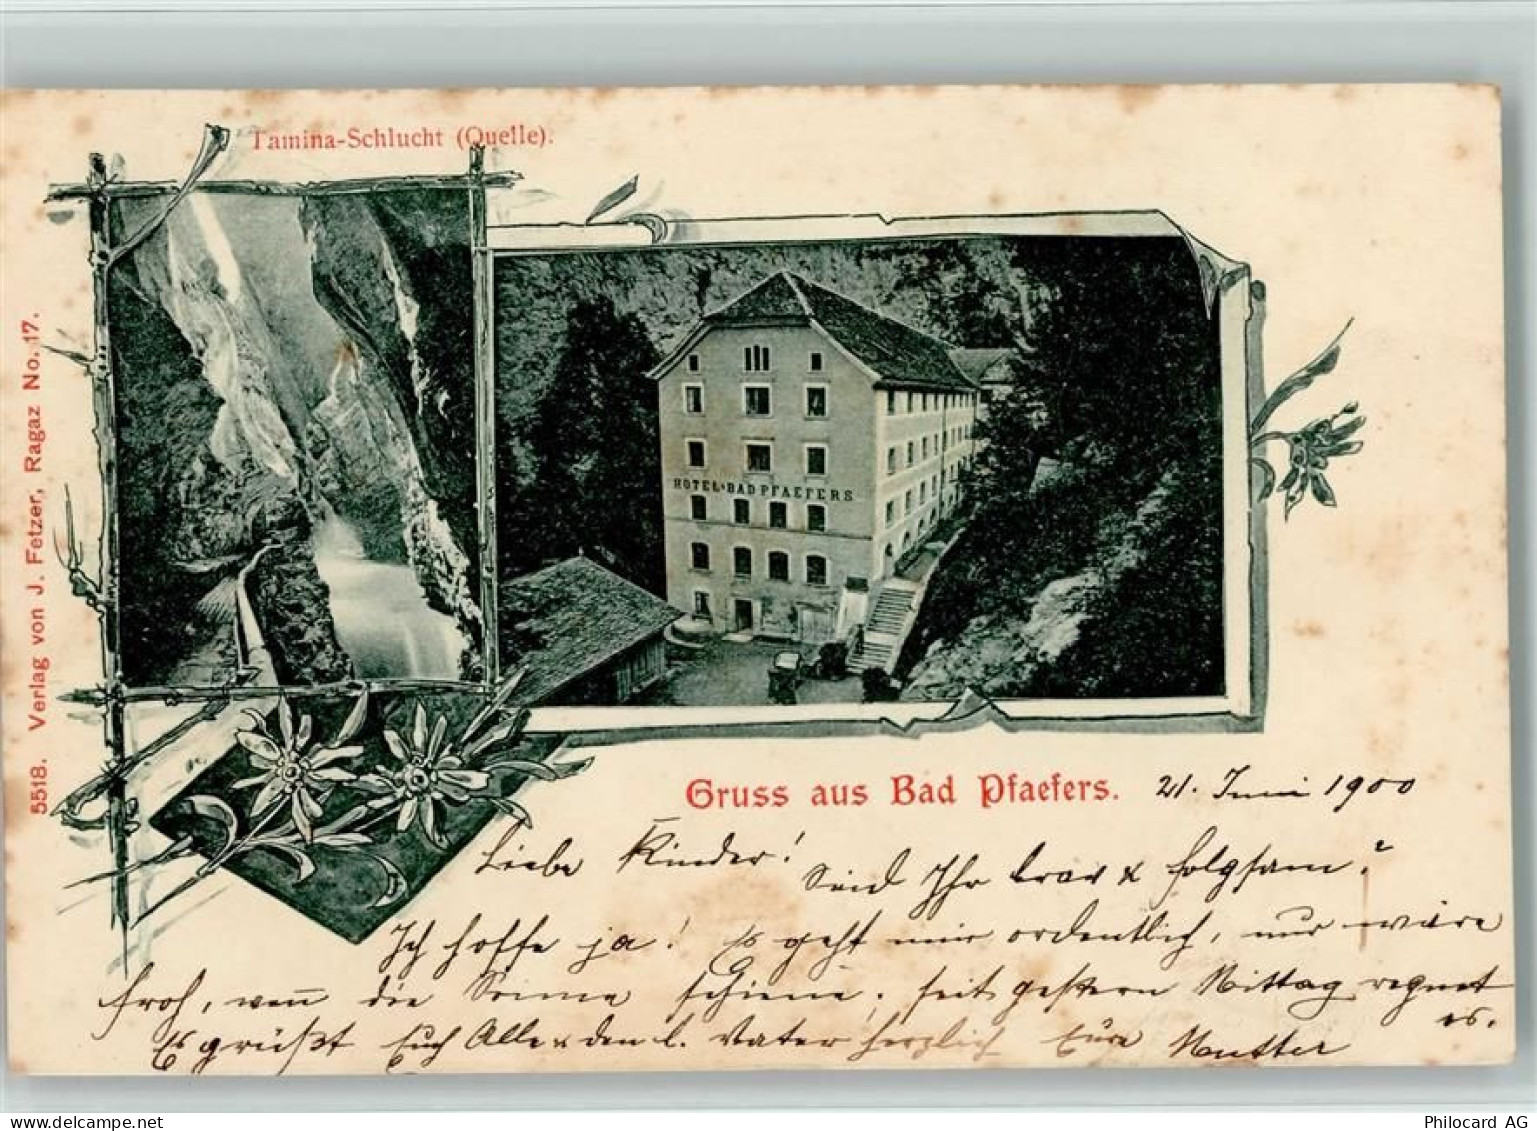 Tamina-Schlucht (Quelle).
5518. Verlag von J. Fetzer, Ragaz No. 17.
HOTEL BAD PFAEFERS
Gruss aus Bad Pfaefers. 21. Juni 1900
Liebe Kinder! Seid Ihr brav & folgsam?
Ich hoffe ja! Es geht mir ordentlich, nur wäre
froh, wen̄ die Sonne schiene. Seit gestern Mittag regnet es.
Es grüßt Euch Alle & den l. Vater herzlich Eure Mutter
Philocard AG
www.delcampe.net